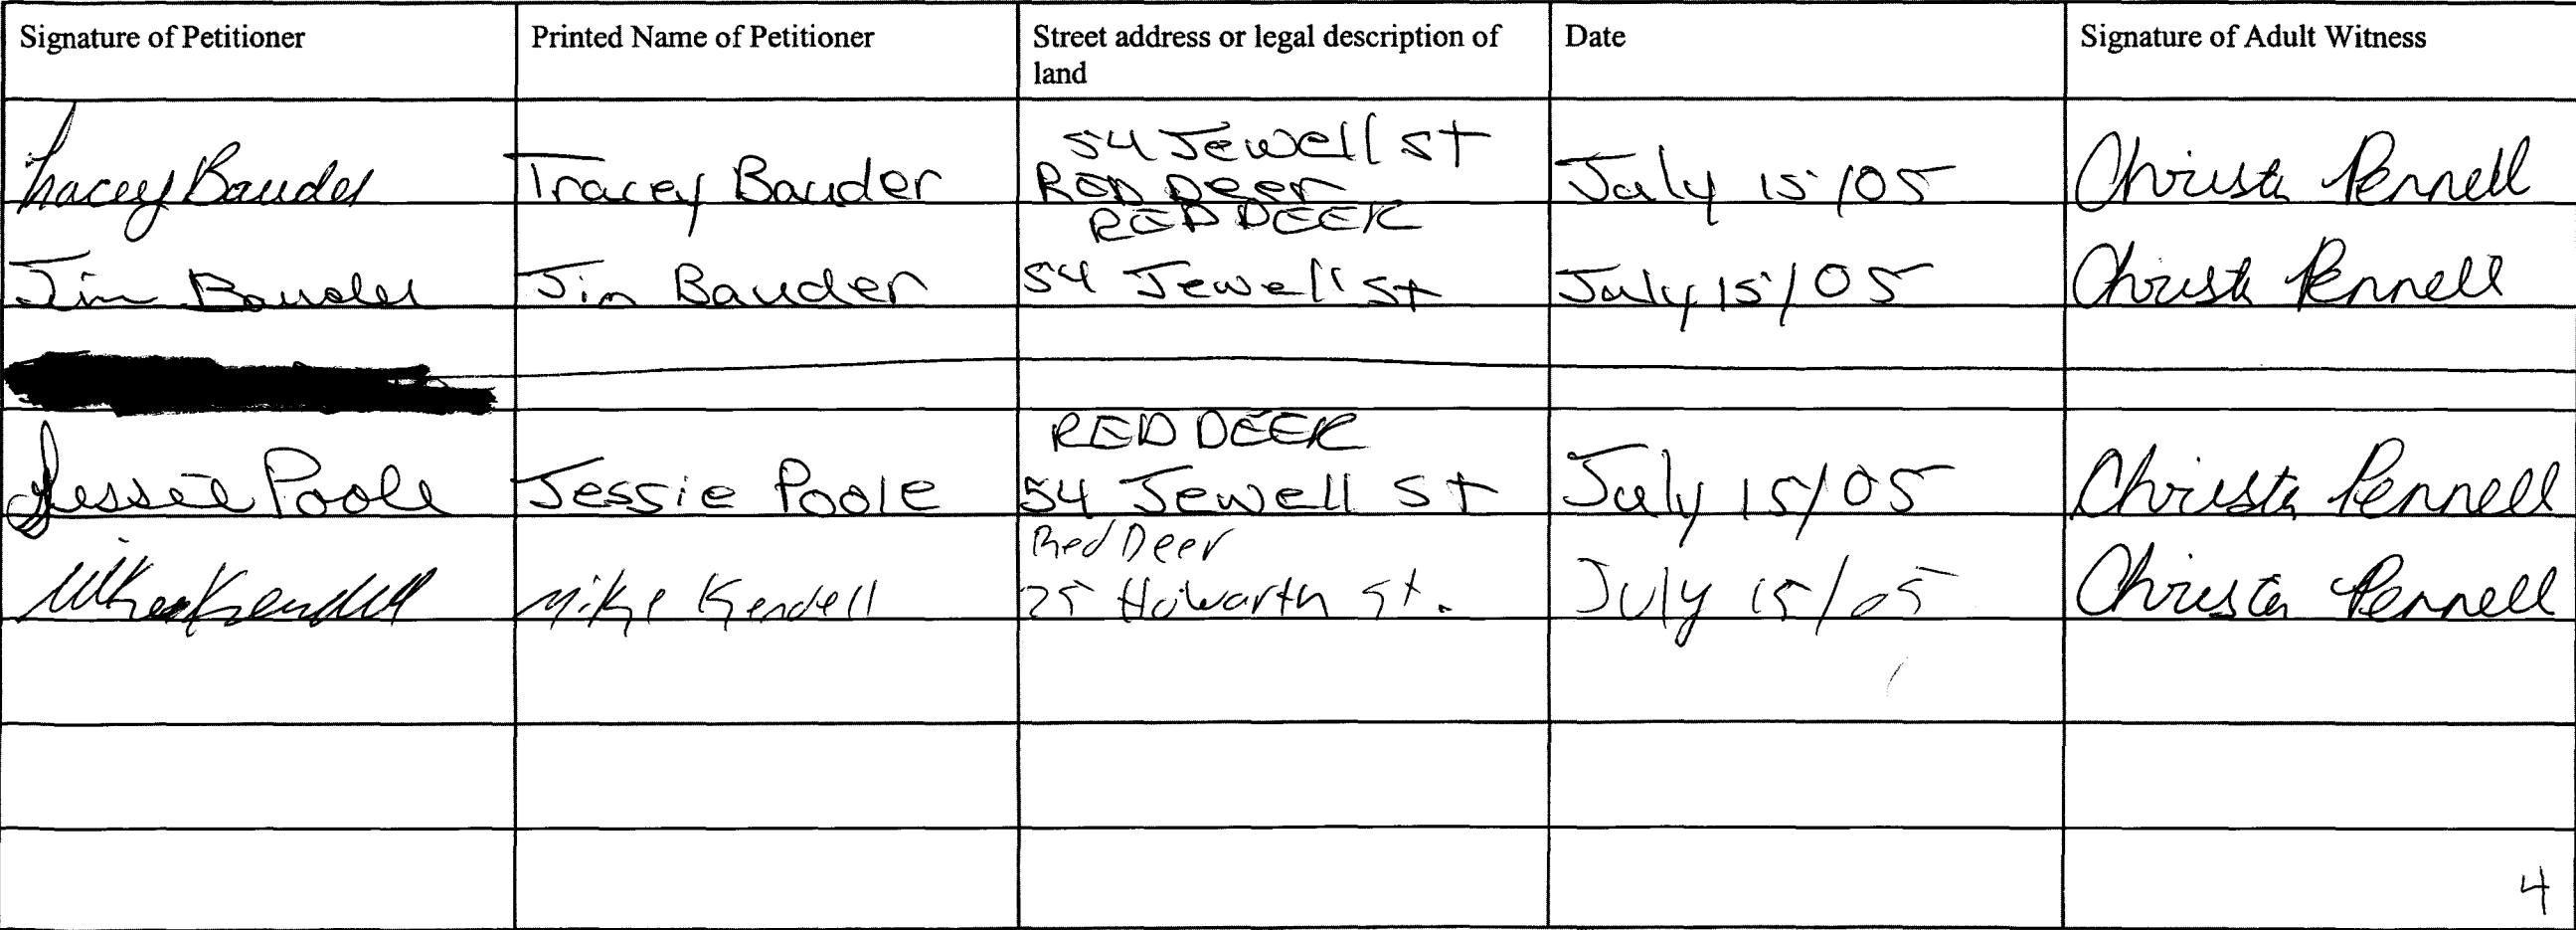 Signature of Petitioner
Printed Name of Petitioner
Street address or legal description of
land
Date
Signature of Adult Witness
Tracey Bauder
Tracey Bauder
54 Jewell St
Red Deer
July 15/05
Christa Pennell
Jim Bauder
Jim Bauder
RED DEER
54 Jewell St
July 15/05
Christa Pennell
Jessie Poole
Jessie Poole
RED DEER
54 Jewell St
July 15/05
Christa Pennell
Mike Kendell
Mike Kendell
Red Deer
25 Howarth St.
July 15/05
Christa Pennell
4